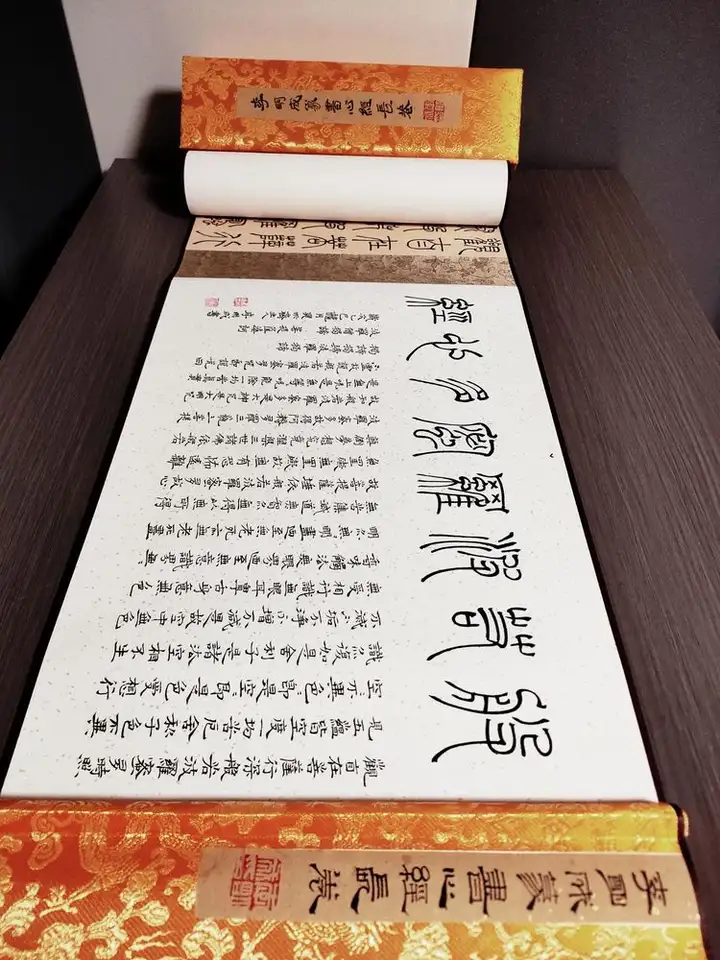 李明成篆書心經長卷
觀自在菩薩
般若波羅蜜多心經
觀自在菩薩行深般若波羅蜜多時照
見五蘊皆空度一切苦厄舍利子色不異
空空不異色色即是空空即是色受想行
識亦復如是舍利子是諸法空相不生
不滅不垢不淨不增不減是故空中無色
無受想行識無眼耳鼻舌身意無色
香味觸法無眼界乃至無意識界無無
明亦無無明盡乃至無老死亦無老死盡
無苦集滅道無智亦無得以無所得
故菩提薩埵依般若波羅蜜多故心
無罣礙無罣礙故無有恐怖遠離
顛倒夢想究竟涅槃三世諸佛依般若
波羅蜜多故得阿耨多羅三藐三菩提
故知般若波羅蜜多是大神咒是大明咒
是無上咒是無等等咒能除一切苦真實
不虛故說般若波羅蜜多咒即說咒曰
揭諦揭諦波羅揭諦
波羅僧揭諦菩提薩婆訶
歲次乙巳 李明成書
李明成篆書心經長卷